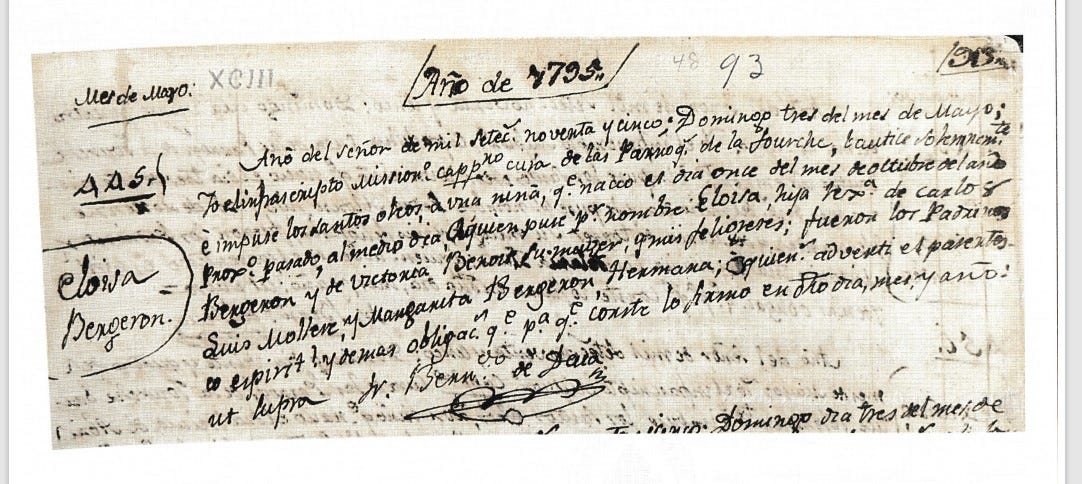 Mes de Mayo:
XCIII
Año de 1795„
48 93
93„
445.
Eloisa
Bergeron.
Año del señor de mil setec.s noventa y cinco; Domingo tres del mes de Mayo;
Yo el infrascripto Mission.o capp.no cura de las Parroq.s de la Fourche, bautice solemnem.te
è impuse los santos oleos, à vna niña, q.e nacio el dia once del mes de octubre del año
prox.o pasado, al medio dia, à quien puse p.r nombre Eloisa, hija lex.a de carlos
Bergeron y de Victoria Benoit su muger, y mis feligreses; fueron los Padrinos
Luis Mollere, y Margarita Bergeron, Hermana; à quien.s adverti el parentes-
co espirit.l y demas obligac.s q.e p.a q.e conste lo firmo en dho dia, mes, y año:
ut supra Fr. Bern.do de Deva
Domingo dia tres del mes de